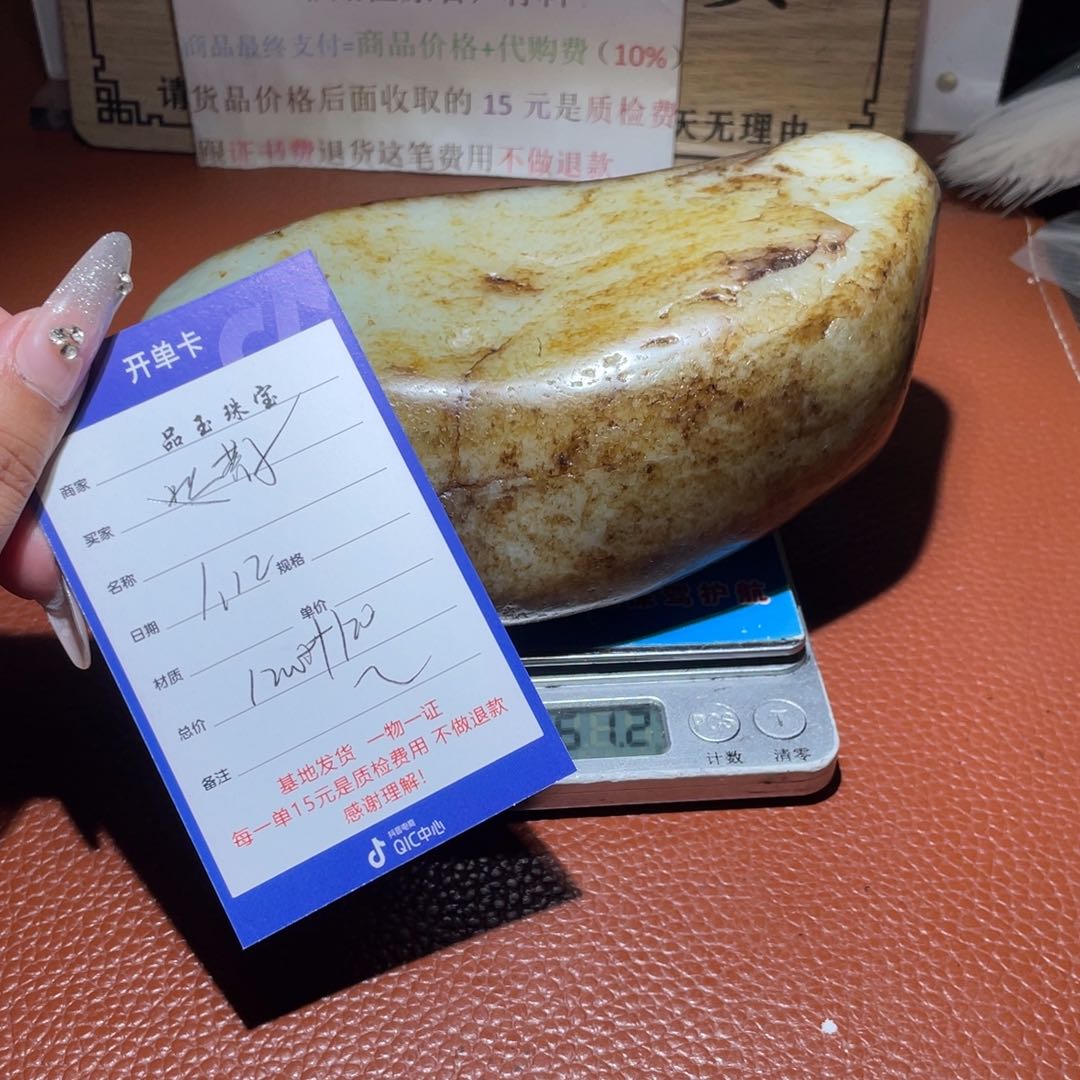 商品最终支付=商品价格+代购费（10%）
请货品价格后面收取的 15 元是质检费
天无理由
跟证书费退货这笔费用不做退款
开单卡
商家 品玉珠宝
买家
名称
日期 1.12 规格
材质 单价
总价
备注
基地发货 一物一证
每一单15元是质检费用 不做退款
感谢理解!
抖音电商
QIC中心
护航
51.2
PCS T
计数 清零